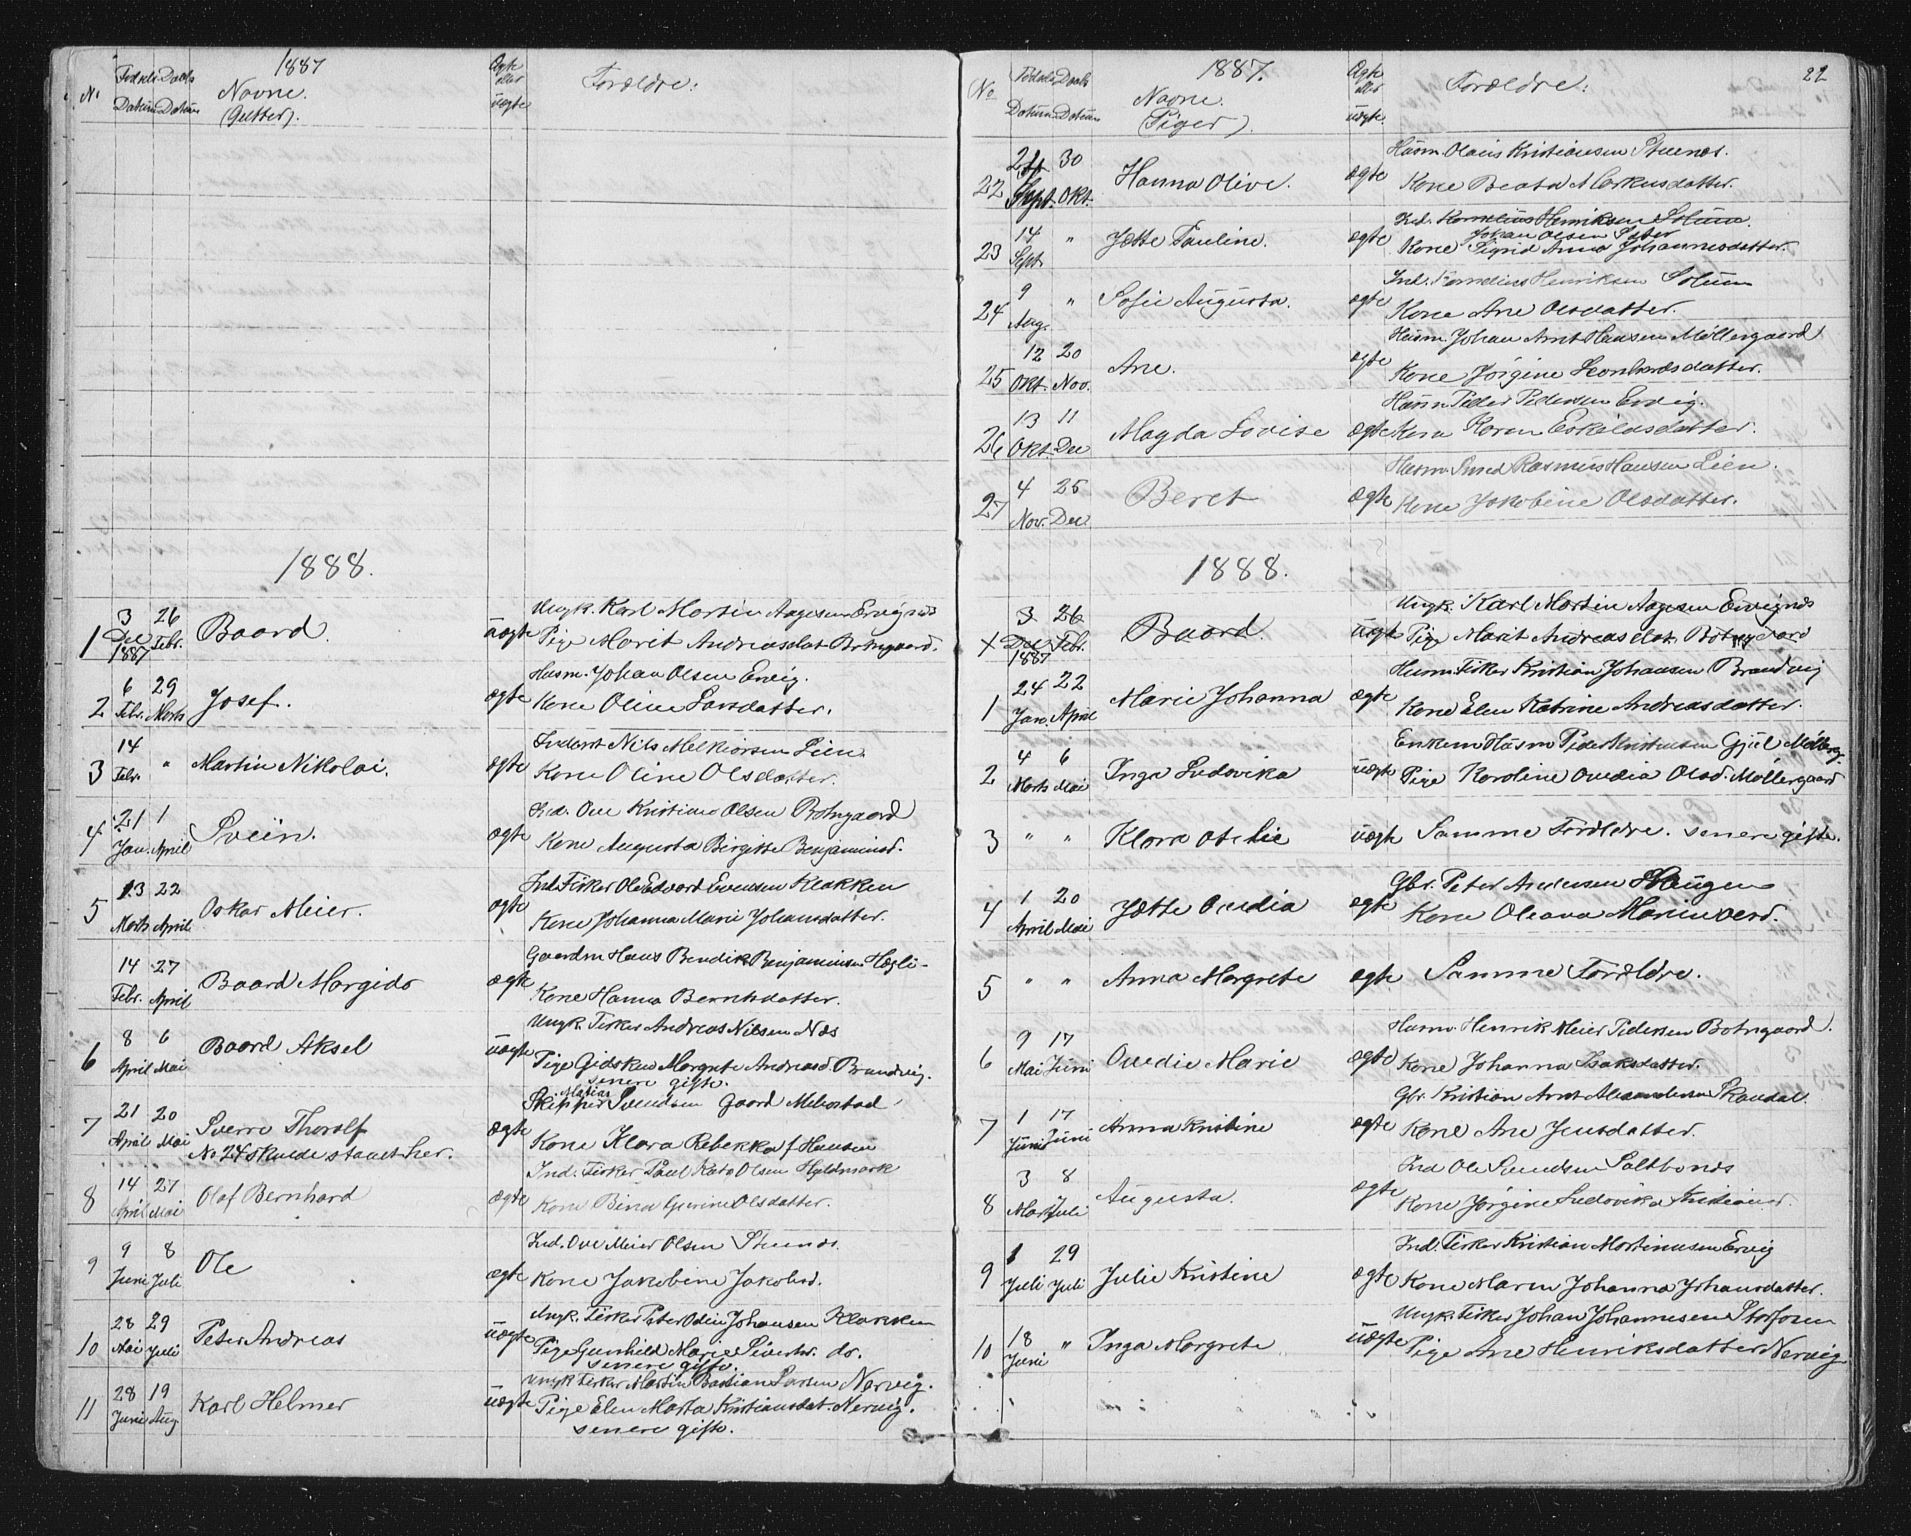 1887
No
Fødsels Daabs
Datum Datum
Navne.
(Gutter).
Ægte
eller
uægte
Forældre:
1888.
1 3 Dec 1887 26 Febr. Baard. uægte Ungk. Karl Martin Aagesen Ervignæs
Pige Marit Andreasdat Botngaard.
2 6 Febr. 29 Marts Josef. ægte Husm. Johan Olsen Ervig.
Kone Oline Larsdatter.
3 14 Febr. " Martin Nikolai. ægte Inderst Nils Melkiorsen Lien
Kone Oline Olsdatter.
4 21 Jan. 1 April Svein. ægte Ind. Ove Kristian Olsen Botngaard
Kone Augusta Birgitte Benjaminsd.
5 13 Marts 22 April Oskar Meier. ægte Ind. Fisker Ole Edvard Evensen Klakken
Kone Johanna Marie Johansdatter.
14 Febr. 27 April Baard Margido ægte Gaardm Hans Bendik Benjaminsen Hegli
Kone Hanna Berntsdatter.
6 8 April 6 Mai Baard Aksel uægte Ungk. Fisker Andreas Nilsen Næs
Pige Gidsken Margrete Andreasd. Brandvig.
senere gifte.
7 21 April 20 Mai Sverre Thorolf ægte Skipper Matias Svendsen Gaard Melvstad
No 24 skulde staaet her. Kone Klara Rebekka f Hansen
8 14 April 27 Mai Olaf Bernhard ægte Ind. Fisker Paul Kato Olsen Hyldmark
Kone Bina Gurine Olsdatter.
9 9 Juni 8 Juli Ole ægte Ind. Ove Meier Olsen Stuenæs.
Kone Jakobine Jakobsd.
10 28 Mai 29 Juli Peter Andreas uægte Ungk. Fisker Peter Odin Johansen Klakken
Pige Gunhild Marie Sivertsd. do.
senere gifte.
11 28 Juni 19 Aug. Karl Helmer uægte Ungk Fisker Martin Bastian Larsen Nervig.
Pige Elen Marta Kristiansdat. Nervig.
senere gifte.
22
1887.
No
Fødsels Daabs
Datum Datum
Navne.
(Piger).
Ægte
eller
uægte.
Forældre:
22 24 Sept. 30 Okt. Hanna Olive. ægte Husm. Olaus Kristiansen Stuenæs.
Kone Beata Markusdatter.
23 14 Sept. " Jette Pauline. ægte Ind. Kornelius Henriksen Solum
Johan Olsen Sæter
Kone Sigrid Anna Johannesdatter.
24 9 Aug. " Sofie Augusta. ægte Ind. Kornelius Henriksen Solum
Kone Ane Olsdatter.
25 12 Okt. 20 Nov. Ane. ægte Husm. Johan Arnt Hansen Møllergaard
Kone Jørgine Leonhardsdatter.
26 13 Okt. 11 Dec Magda Lovise ægte Husm Peder Pedersen Ervig.
Kone Karen Eskildsdatter.
27 4 Nov. 25 Dec Beret ægte Husm. Smed Rasmus Hansen Lien.
Kone Jakobine Olsdatter.
1888.
3 Dec 1887 26 Febr. Baard. uægte Ungk. Karl Martin Aagesen Ervignæs
Pige Marit Andreasdat. Botngaard
1 24 Jan. 22 April Marie Johanna ægte Husm. Fisker Kristian Johansen Brandvig
Kone Elen Katrine Andreasdatter.
2 4 Marts 6 Mai Inga Ludovika uægte Enkem Husm Peder Kristensen Gjul Møllerg.
Pige Karoline Ovedia Olsd. Møllergaard
3 " " Klara Otelie uægte Samme Forældre. senere gifte.
4 1 April 20 Mai Jette Ovedia ægte Gbr. Peter Andersen Haugen
Kone Oleana
5 " " Anna Margrete ægte Samme Forældre.
6 9 Mai 17 Juni Ovedie Marie ægte Husm. Henrik Meier Pedersen Botngaard.
Kone Johanna Isaksdatter.
7 1 Juni 17 Juni Anna Kristine ægte Gbr. Kristian Arnt Alexandersen Skaudal.
Kone Ane Jensdatter.
8 3 Marts 8 Juli Augusta. ægte Ind Ole Svendsen Saltbonæs
Kone Jørgine Ludovika Kristiansd.
9 1 Juli 29 Juli Julie Kristine ægte Ind. Fisker Kristian Martinusen Ervig
Kone Maren Johanna Johansdatter.
10 18 Juni " Inga Margrete uægte Ungk. Fisker Johan Johannesen Storfosen
Pige Ane Henriksdatter Nervig